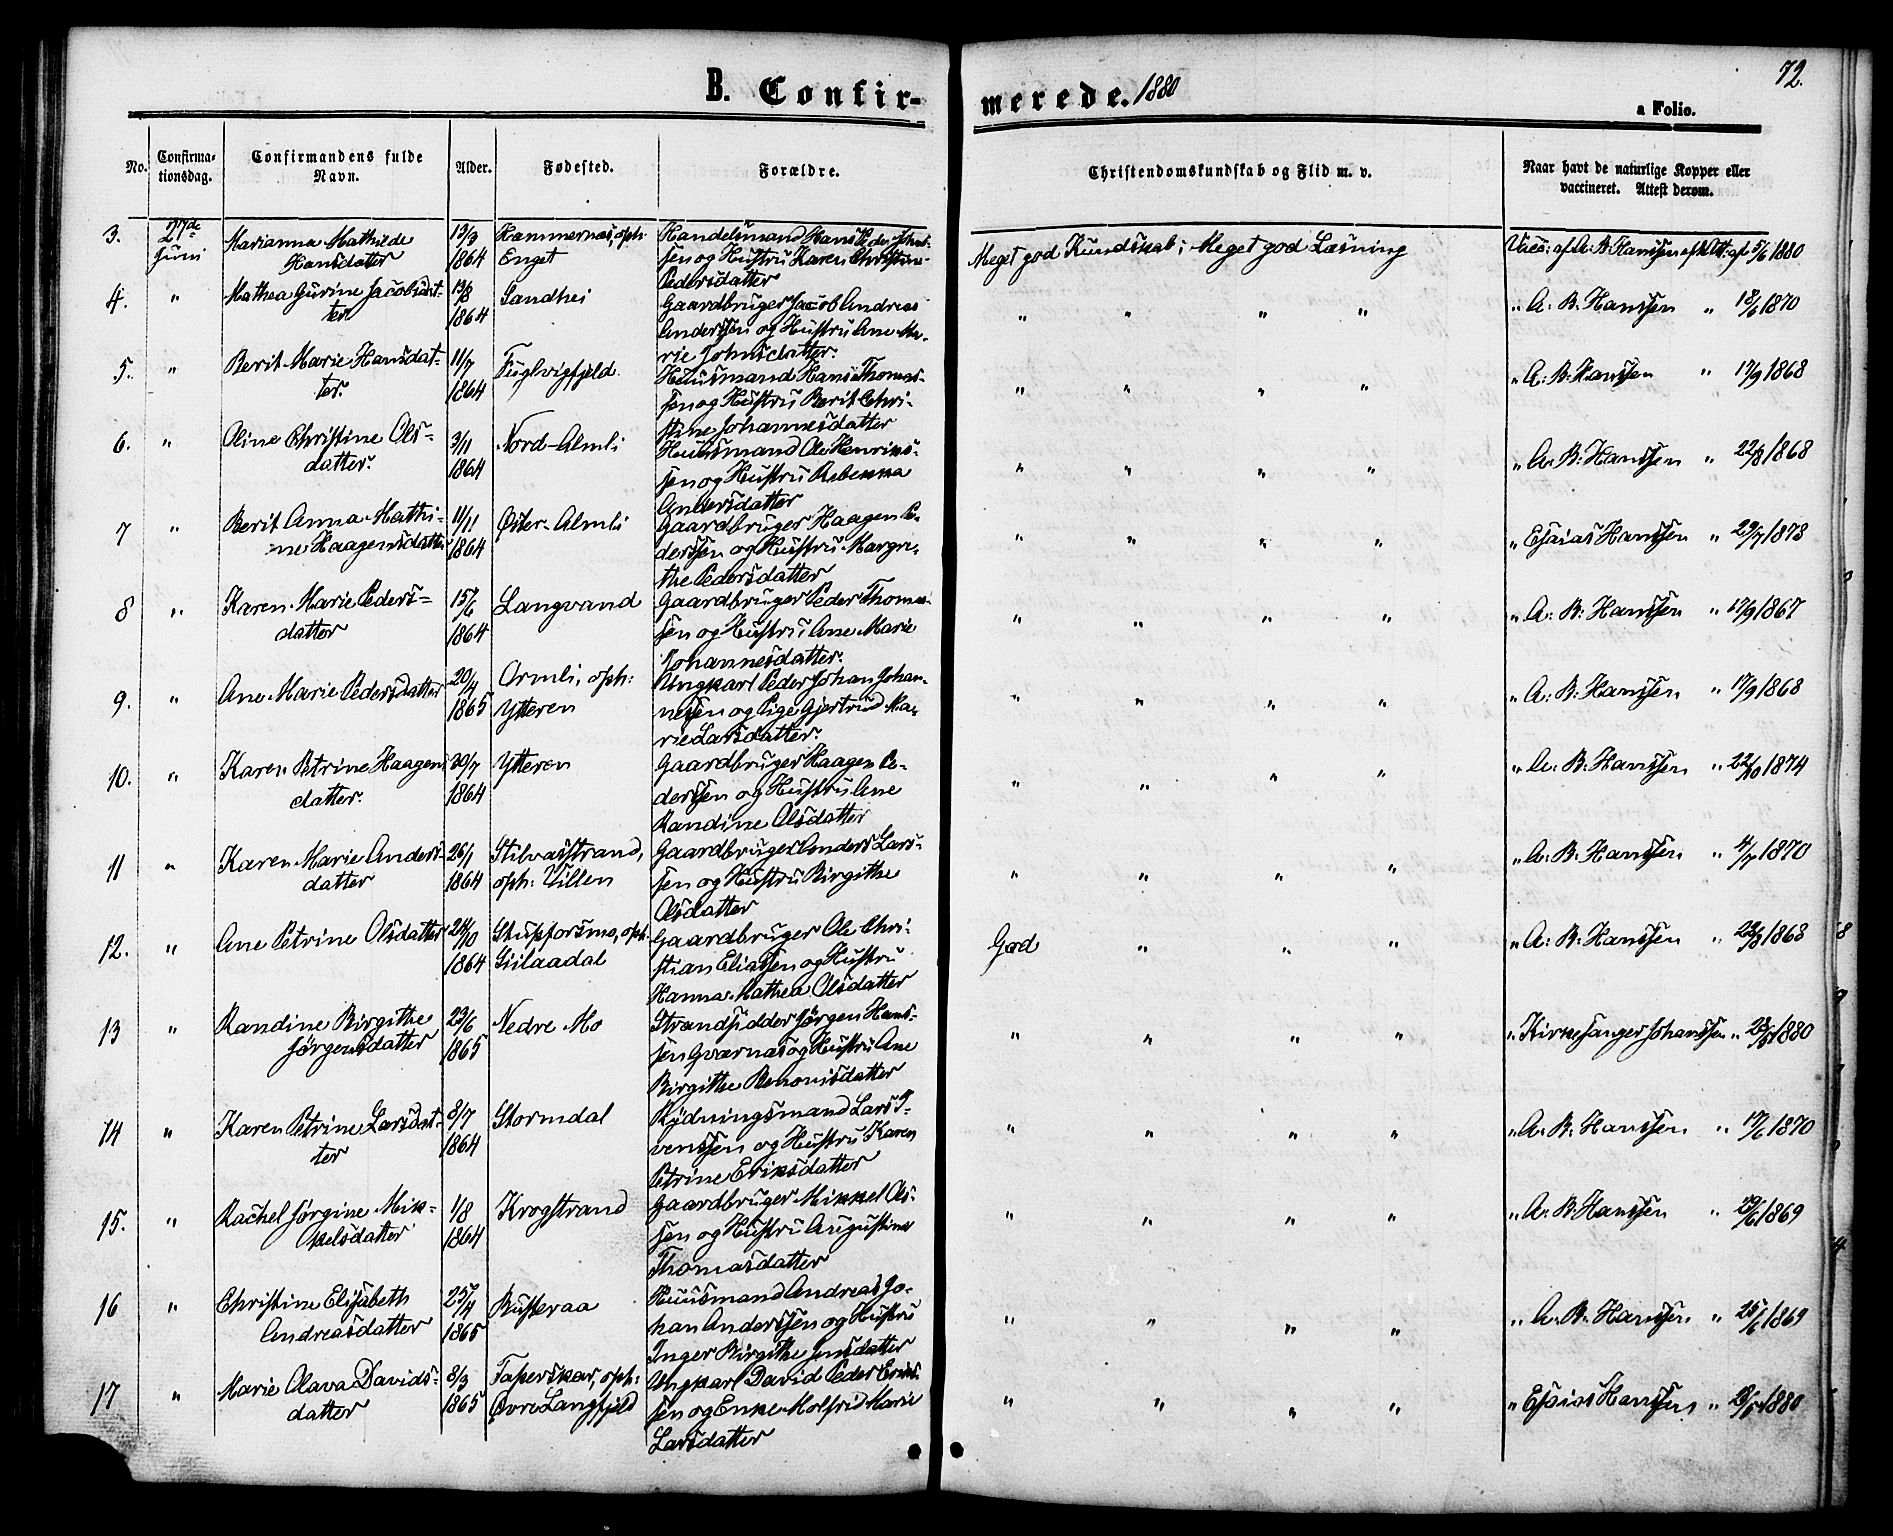 72.
B. Confir-
merede. 1880
a Folio.
No.
Confirma-
tionsdag.
Confirmandens fulde
Navn.
Alder.
Fødested.
Forældre.
Christendomskundskab og Flid m. v.
Naar havt de naturlige Kopper eller
vaccineret. Attest derom.
3.
27de
Juni
Marianna Mathilde
Hansdatter
13/3
1864
Hammernæs, oph:
Enget
Handelsmand Hans Peder Johnt-
sen og Hustru Karen Christine
Pedersdatter
Meget god Kundskab; Meget god Læsning
Vacc: af A. B. Hanssen eft. Att: af 5/6 1880
4.
"
Mathea Gurine Jacobsdat-
ter
13/8
1864
Sandhei
Gaardbruger Jacob Andreas
Anderssen og Hustru Ane Ma-
rie Johnsdatter.
" " " "
" A: B: Hanssen " 18/6 1870
5.
"
Berit Marie Hansdat-
ter.
11/7
1864
Fuglvigfjeld.
Huusmand Hans Thomas-
sen og Hustru Berit Chri-
stine Johannesdatter
" " " "
" A: B: Hanssen " 17/9 1868
6.
"
Oline Christine Ols-
datter.
3/11
1864
Nord-Almli
Huusmand Ole Henriks-
sen og Hustru Rebekka
Andersdatter
" " " "
" A: B: Hanssen " 22/8 1868
7
"
Berit Anna Mathi-
ne Haagensdatter
11/11
1864
Øster-Almli
Gaardbruger Haagen Pe-
derssen og Hustru Margre-
the Pedersdatter
" " " "
" Esaias Hanssen " 29/7 1878
8
"
Karen Marie Peders-
datter
15/6
1864
Langvand
Gaardbruger Peder Thomas-
sen og Hustru Ane Marie
Johannesdatter.
" " " "
" A: B: Hanssen " 17/9 1867
9.
"
Ane Marie Pedersdatter
20/4
1865
Ormli, oph:
Ytteren
Ungkarl Peder Johan Johan-
nessen og Pige Gjertrud Ma-
rie Larsdatter.
" " " "
" A: B: Hanssen " 17/9 1868
10.
"
Karen Petrine Haagens
datter.
30/7
1864
Ytteren
Gaardbruger Haagen Pe-
derssen og Hustru Ane
Randine Olsdatter
" " " "
" A: B: Hanssen " 22/10 1874
11
"
Karen Marie Anders-
datter
26/1
1864
Stilvasstrand,
oph: Villen
Gaardbruger Anders Lars-
sen og Hustru Birgithe
Olsdatter
" " " "
" A: B: Hanssen " 4/7 1870
12.
"
Ane Petrine Olsdatter
24/10
1864
Stupforsmo, oph:
Giilaadal
Gaardbruger Ole Chri-
stian Eliassen og Hustru
Hanna Mathea Olsdatter
God " " "
" A: B: Hanssen " 22/8 1868
13
"
Randine Birgithe
Jørgensdatter
23/6
1865
Nedre Mo
Strandsidder Jørgen Hans-
sen Gværnæs og Hustru Ane
Birgithe Benonisdatter
" " " "
" Kirkesanger Johanssen " 28/5 1880
14
"
Karen Petrine Larsdat-
ter
8/7
1864
Stormdal
Rydningsmand Lars I-
verssen og Hustru Karen
Petrine Eriksdatter
" " " "
" A: B: Hanssen " 17/6 1870
15.
"
Rachel Jørgine Mik-
kelsdatter
1/8
1864
Krogstrand
Gaardbruger Mikkel Ols-
sen og Hustru Augustine
Thomasdatter
" " " "
" A: B Hanssen " 29/6 1869
16
"
Christine Elisabeth
Andreasdatter
25/4
1865
Russeraa
Huusmand Andreas Jo-
han Anderssen og Hustru
Inger Birgithe Jensdatter
" " " "
" A: B: Hanssen " 25/6 1869
17
"
Marie Olava Davids-
datter
8/3
1865
Taperskar, oph:
Øvre Langfjeld
Ungkarl David Peder Eriks-
sen og Enke Molfrid Marie
Larsdatter
" " " "
" Esaias Hanssen " 21/5 1880